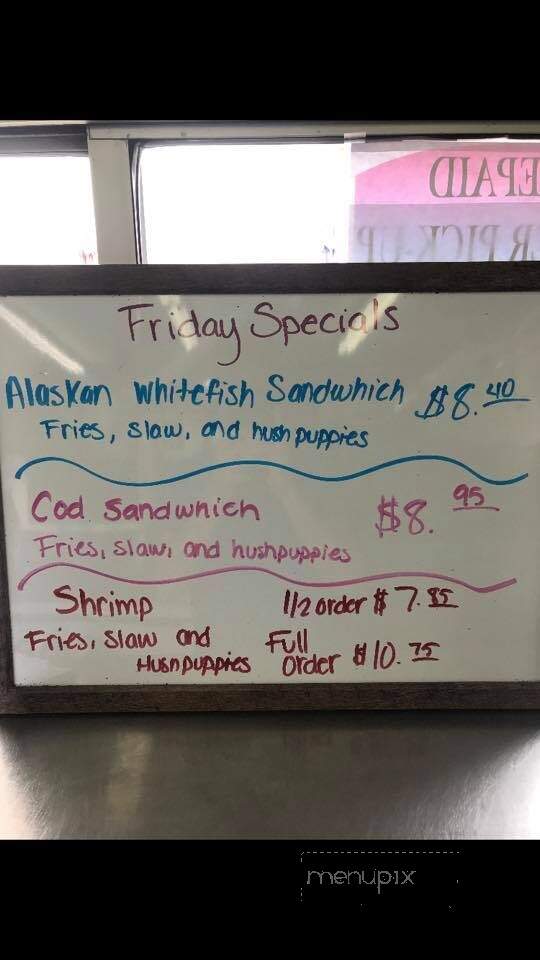 EPAID
R PICK-UP
Friday Specials
Alaskan Whitefish Sandwhich $8.40
Fries, slaw, and hush puppies
Cod Sandwhich $8.95
Fries, slaw, and hushpuppies
Shrimp 1/2 order $7.85
Fries, Slaw and Full
Hushpuppies Order $10.75
menupix